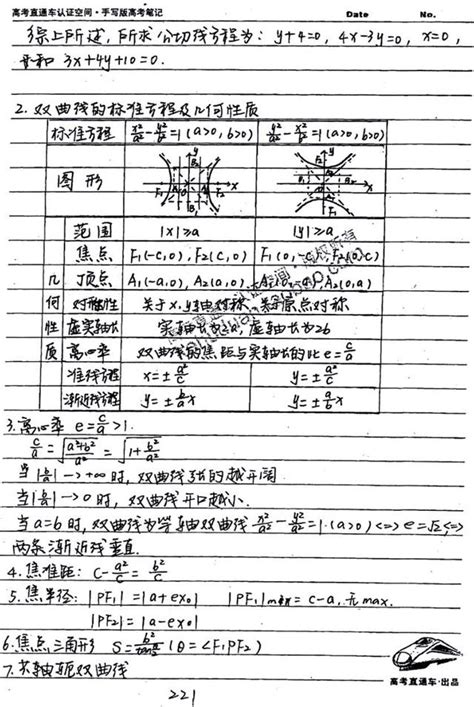 高考直通车认证空间·手写版高考笔记 Date No.
综上所述,所求公切线方程为: y+4=0, 4x-3y=0, x=0,
和 3x+4y+10=0.
2. 双曲线的标准方程及几何性质
标准方程 x²/a²-y²/b²=1 (a>0, b>0) y²/a²-x²/b²=1 (a>0, b>0)
图形
范围 |x|≥a |y|≥a
焦点 F₁(-c,0), F₂(c,0) F₁(0,-c), F₂(0,c)
几何性质
顶点 A₁(-a,0), A₂(a,0) A₂(0,a)
对称性 关于x.y轴对称,关于原点对称
虚实轴长 实轴长为2a, 虚轴长为2b
离心率 双曲线的焦距与实轴长的比 e=c/a
准线方程 x=±a²/c y=±a²/c
渐近线方程 y=±b/a x y=±a/b x
3.离心率 e=c/a>1.
c/a=√((a²+b²)/a²)=√(1+b²/a²)
当|b/a|→+∞时,双曲线张的越开阔
当|b/a|→0时,双曲线开口越小.
当a=b时,双曲线为等轴双曲线 x²/a²-y²/a²=1.(a>0)<=>e=√2<=>
两条渐近线垂直.
4.焦准距: c-a²/c=b²/c
5.焦半径: |PF₁|=|a+ex₀| |PF₁|=c-a,无max.
|PF₂|=|a-ex₀|
6.焦点三角形 (θ=∠F₁PF₂)
7.共轴双曲线
高考直通车·出品
221